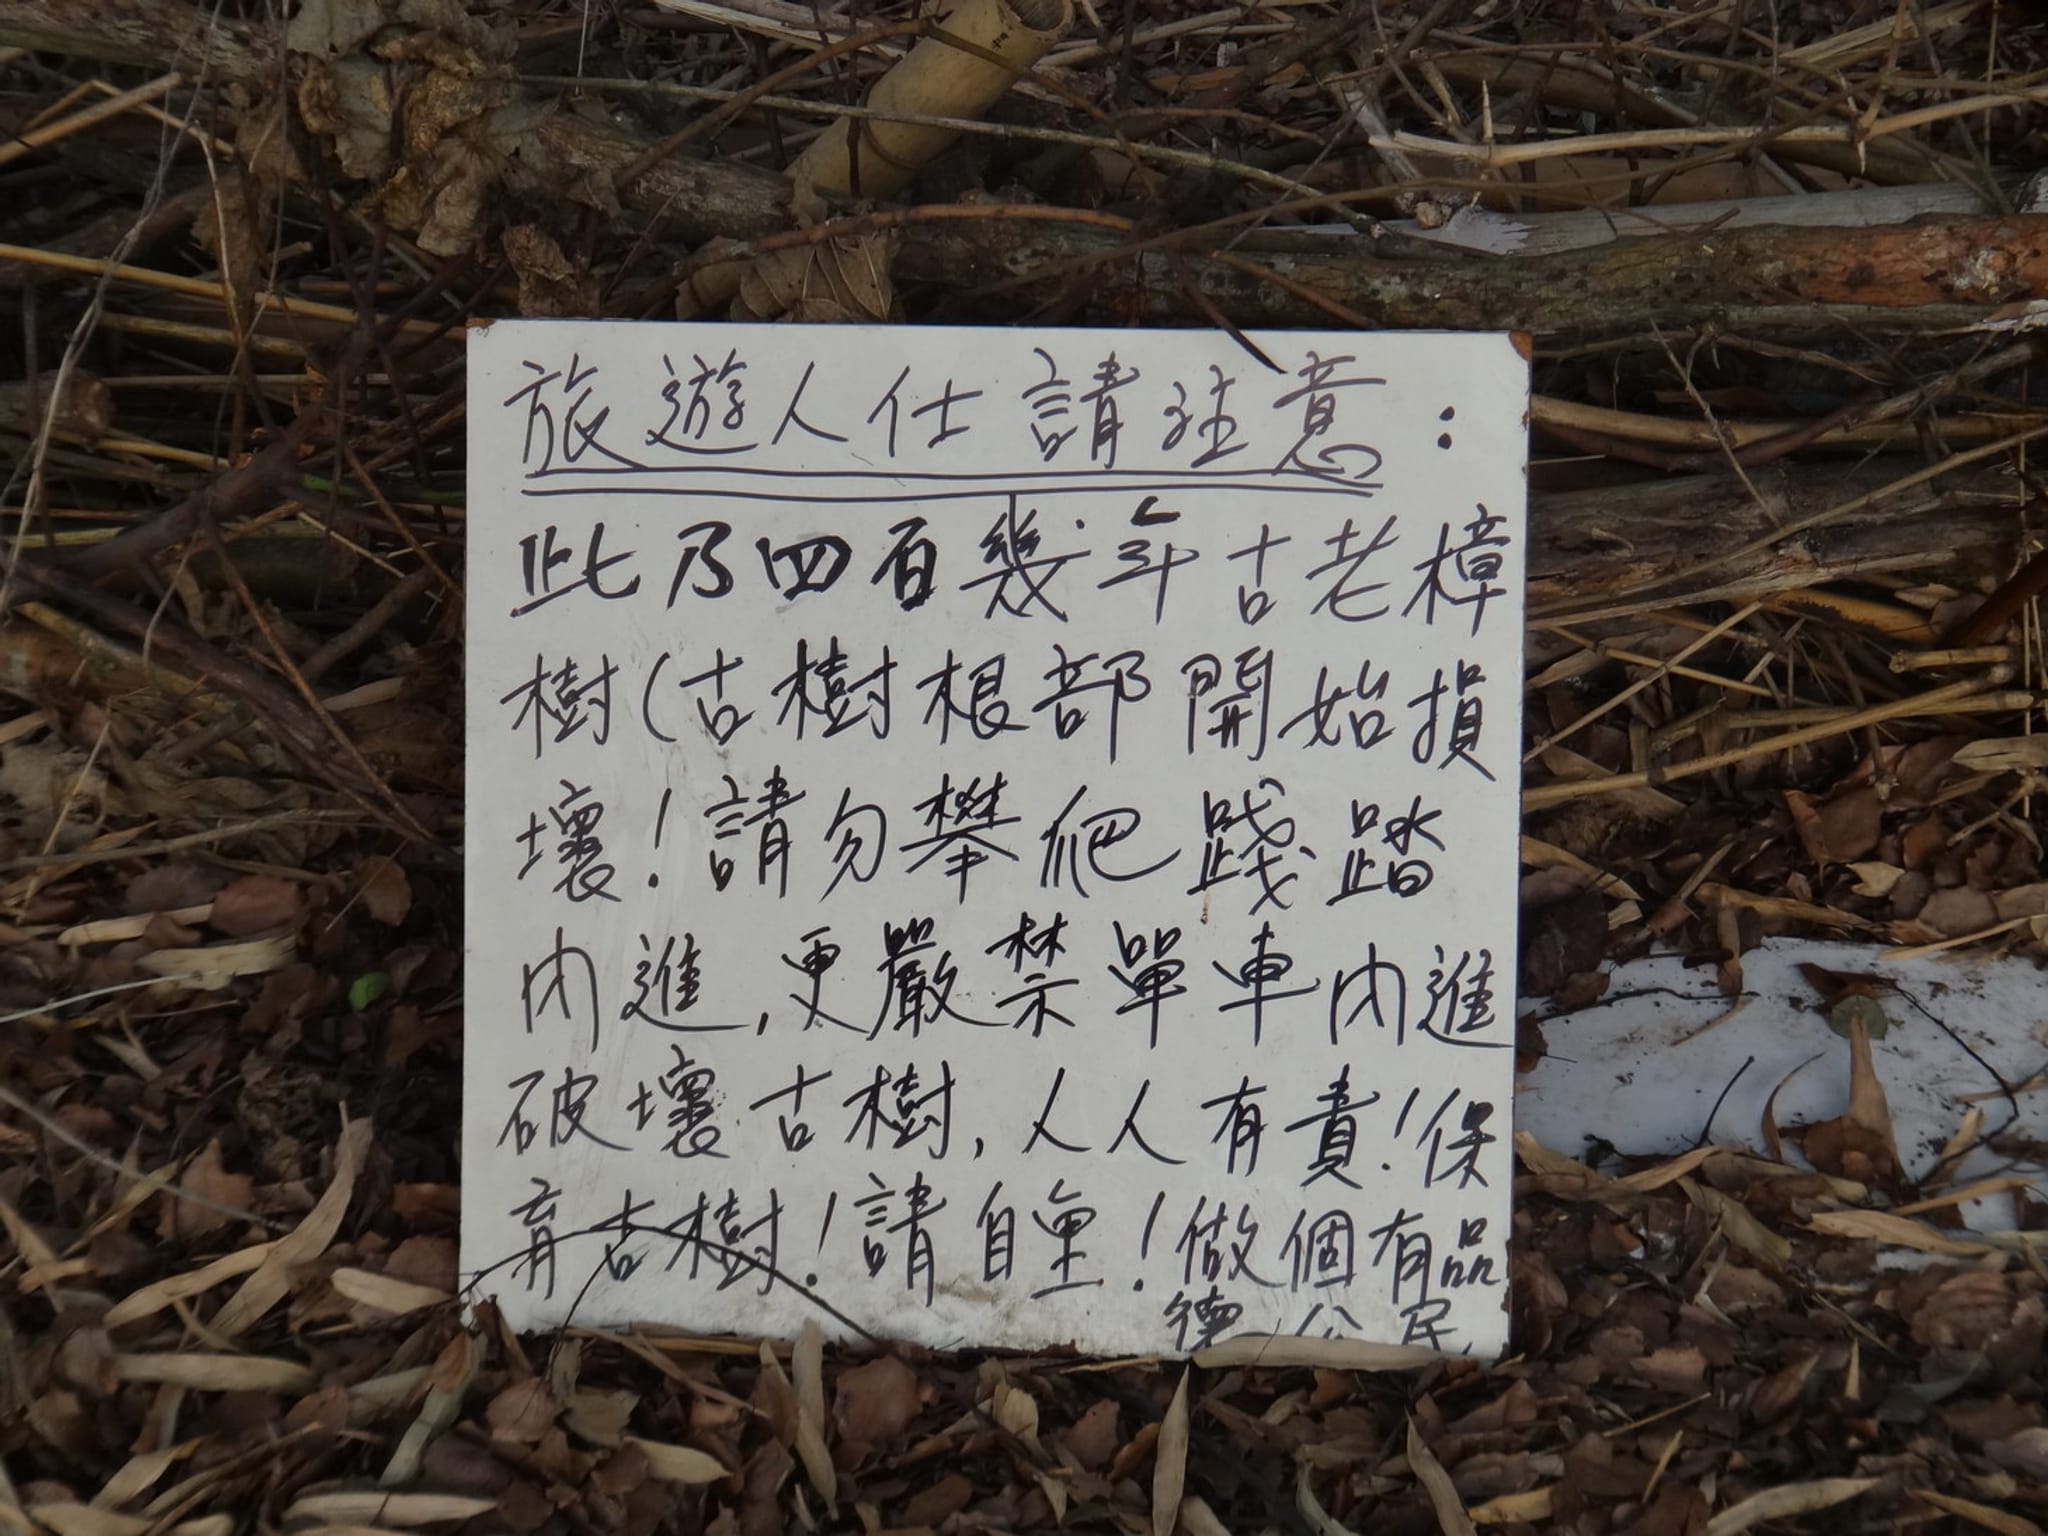 旅遊人仕請注意：
此乃四百幾年古老樟
樹(古樹根部開始損
壞！請勿攀爬踐踏
内進,更嚴禁單車内進
破壞古樹,人人有責！保
育古樹！請自重！做個有品
德公民